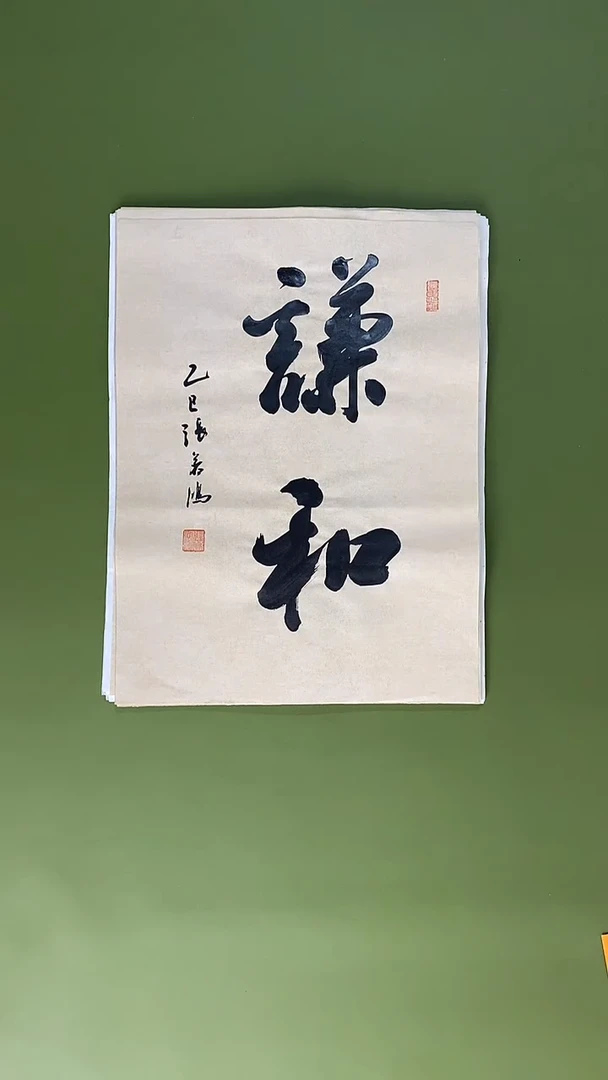 謙和
乙巳張善鴻